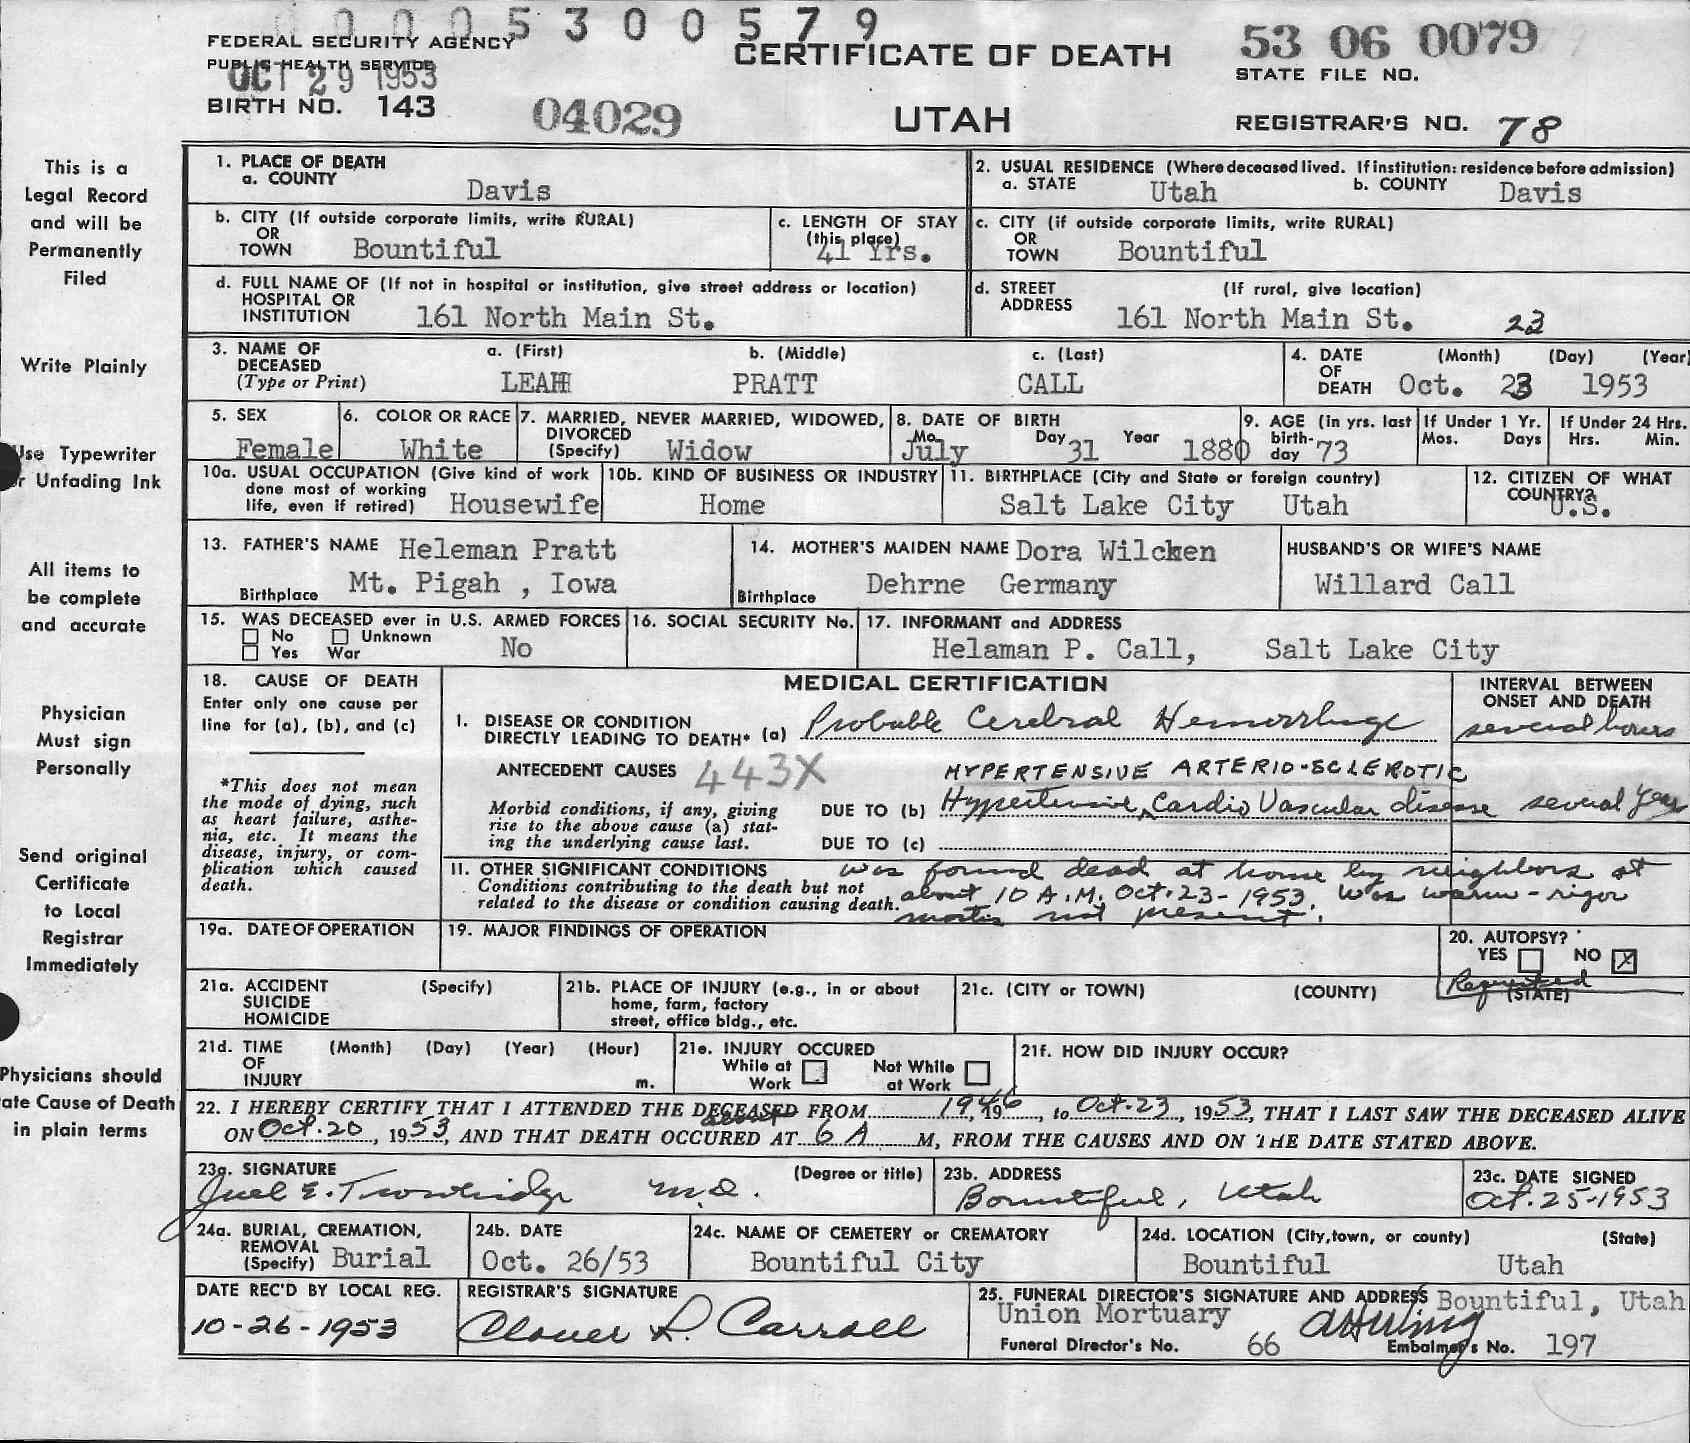 0 0 0 0 5 3 0 0 5 7 9
FEDERAL SECURITY AGENCY
PUBLIC HEALTH SERVICE
OCT 29 1953
BIRTH NO. 143
04029
CERTIFICATE OF DEATH
UTAH
53 06 0079
STATE FILE NO.
REGISTRAR'S NO. 78
This is a
Legal Record
and will be
Permanently
Filed
Write Plainly
Use Typewriter
or Unfading Ink
All items to
be complete
and accurate
Physician
Must sign
Personally
Send original
Certificate
to Local
Registrar
Immediately
Physicians should
ate Cause of Death
in plain terms
1. PLACE OF DEATH
a. COUNTY Davis
2. USUAL RESIDENCE (Where deceased lived. If institution: residence before admission)
a. STATE Utah b. COUNTY Davis
b. CITY (If outside corporate limits, write RURAL)
OR
TOWN Bountiful
c. LENGTH OF STAY
(this place)
41 Yrs.
c. CITY (if outside corporate limits, write RURAL)
OR
TOWN Bountiful
d. FULL NAME OF (If not in hospital or institution, give street address or location)
HOSPITAL OR
INSTITUTION 161 North Main St.
d. STREET (If rural, give location)
ADDRESS
161 North Main St. 23
3. NAME OF a. (First) b. (Middle) c. (Last)
DECEASED
(Type or Print) LEAH PRATT CALL
4. DATE (Month) (Day) (Year)
OF
DEATH Oct. 23 1953
5. SEX
Female
6. COLOR OR RACE
White
7. MARRIED, NEVER MARRIED, WIDOWED,
DIVORCED
(Specify) Widow
8. DATE OF BIRTH
Mo. Day Year
July 31 1880
9. AGE (in yrs. last
birth-
day 73
If Under 1 Yr.
Mos. Days
If Under 24 Hrs.
Hrs. Min.
10a. USUAL OCCUPATION (Give kind of work
done most of working
life, even if retired) Housewife
10b. KIND OF BUSINESS OR INDUSTRY
Home
11. BIRTHPLACE (City and State or foreign country)
Salt Lake City Utah
12. CITIZEN OF WHAT
COUNTRY?
U.S.
13. FATHER'S NAME Heleman Pratt
Birthplace Mt. Pigah , Iowa
14. MOTHER'S MAIDEN NAME Dora Wilcken
Birthplace Dehrne Germany
HUSBAND'S OR WIFE'S NAME
Willard Call
15. WAS DECEASED ever in U.S. ARMED FORCES
No Unknown
Yes War No
16. SOCIAL SECURITY No.
17. INFORMANT and ADDRESS
Helaman P. Call, Salt Lake City
18. CAUSE OF DEATH
Enter only one cause per
line for (a), (b), and (c)
*This does not mean
the mode of dying, such
as heart failure, asthe-
nia, etc. It means the
disease, injury, or com-
plication which caused
death.
MEDICAL CERTIFICATION
INTERVAL BETWEEN
ONSET AND DEATH
I. DISEASE OR CONDITION
DIRECTLY LEADING TO DEATH* (a) Probable Cerebral Hemorrhage several hours
ANTECEDENT CAUSES 443X HYPERTENSIVE ARTERIO-SCLEROTIC
Morbid conditions, if any, giving
rise to the above cause (a) stat-
ing the underlying cause last.
DUE TO (b) Hypertensive Cardio Vascular disease several years
DUE TO (c)
II. OTHER SIGNIFICANT CONDITIONS
Conditions contributing to the death but not
related to the disease or condition causing death.
was found dead at home by neighbors at
about 10 A.M. Oct. 23 - 1953. Was warm - rigor
mortis not present.
19a. DATE OF OPERATION
19. MAJOR FINDINGS OF OPERATION
20. AUTOPSY?
YES NO X
Requested
21a. ACCIDENT (Specify)
SUICIDE
HOMICIDE
21b. PLACE OF INJURY (e.g., in or about
home, farm, factory
street, office bldg., etc.
21c. (CITY or TOWN) (COUNTY) (STATE)
21d. TIME (Month) (Day) (Year) (Hour)
OF
INJURY m.
21e. INJURY OCCURED
While at Not While
Work at Work
21f. HOW DID INJURY OCCUR?
22. I HEREBY CERTIFY THAT I ATTENDED THE DECEASED FROM 1946, 19 , to Oct. 23, 1953, THAT I LAST SAW THE DECEASED ALIVE
ON Oct. 20, 1953, AND THAT DEATH OCCURED AT about 6 A M, FROM THE CAUSES AND ON THE DATE STATED ABOVE.
23a. SIGNATURE (Degree or title)
Juel E. Trowbridge M.D.
23b. ADDRESS
Bountiful, Utah
23c. DATE SIGNED
Oct. 25-1953
24a. BURIAL, CREMATION,
REMOVAL
(Specify) Burial
24b. DATE
Oct. 26/53
24c. NAME OF CEMETERY or CREMATORY
Bountiful City
24d. LOCATION (City, town, or county) (State)
Bountiful Utah
DATE REC'D BY LOCAL REG.
10-26-1953
REGISTRAR'S SIGNATURE
Clover L. Carroll
25. FUNERAL DIRECTOR'S SIGNATURE AND ADDRESS Bountiful, Utah
Union Mortuary
Funeral Director's No. 66 Embalmer's No. 197